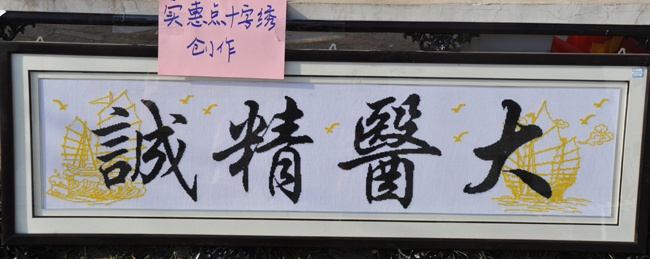 实惠点十字绣
创作
大醫精誠